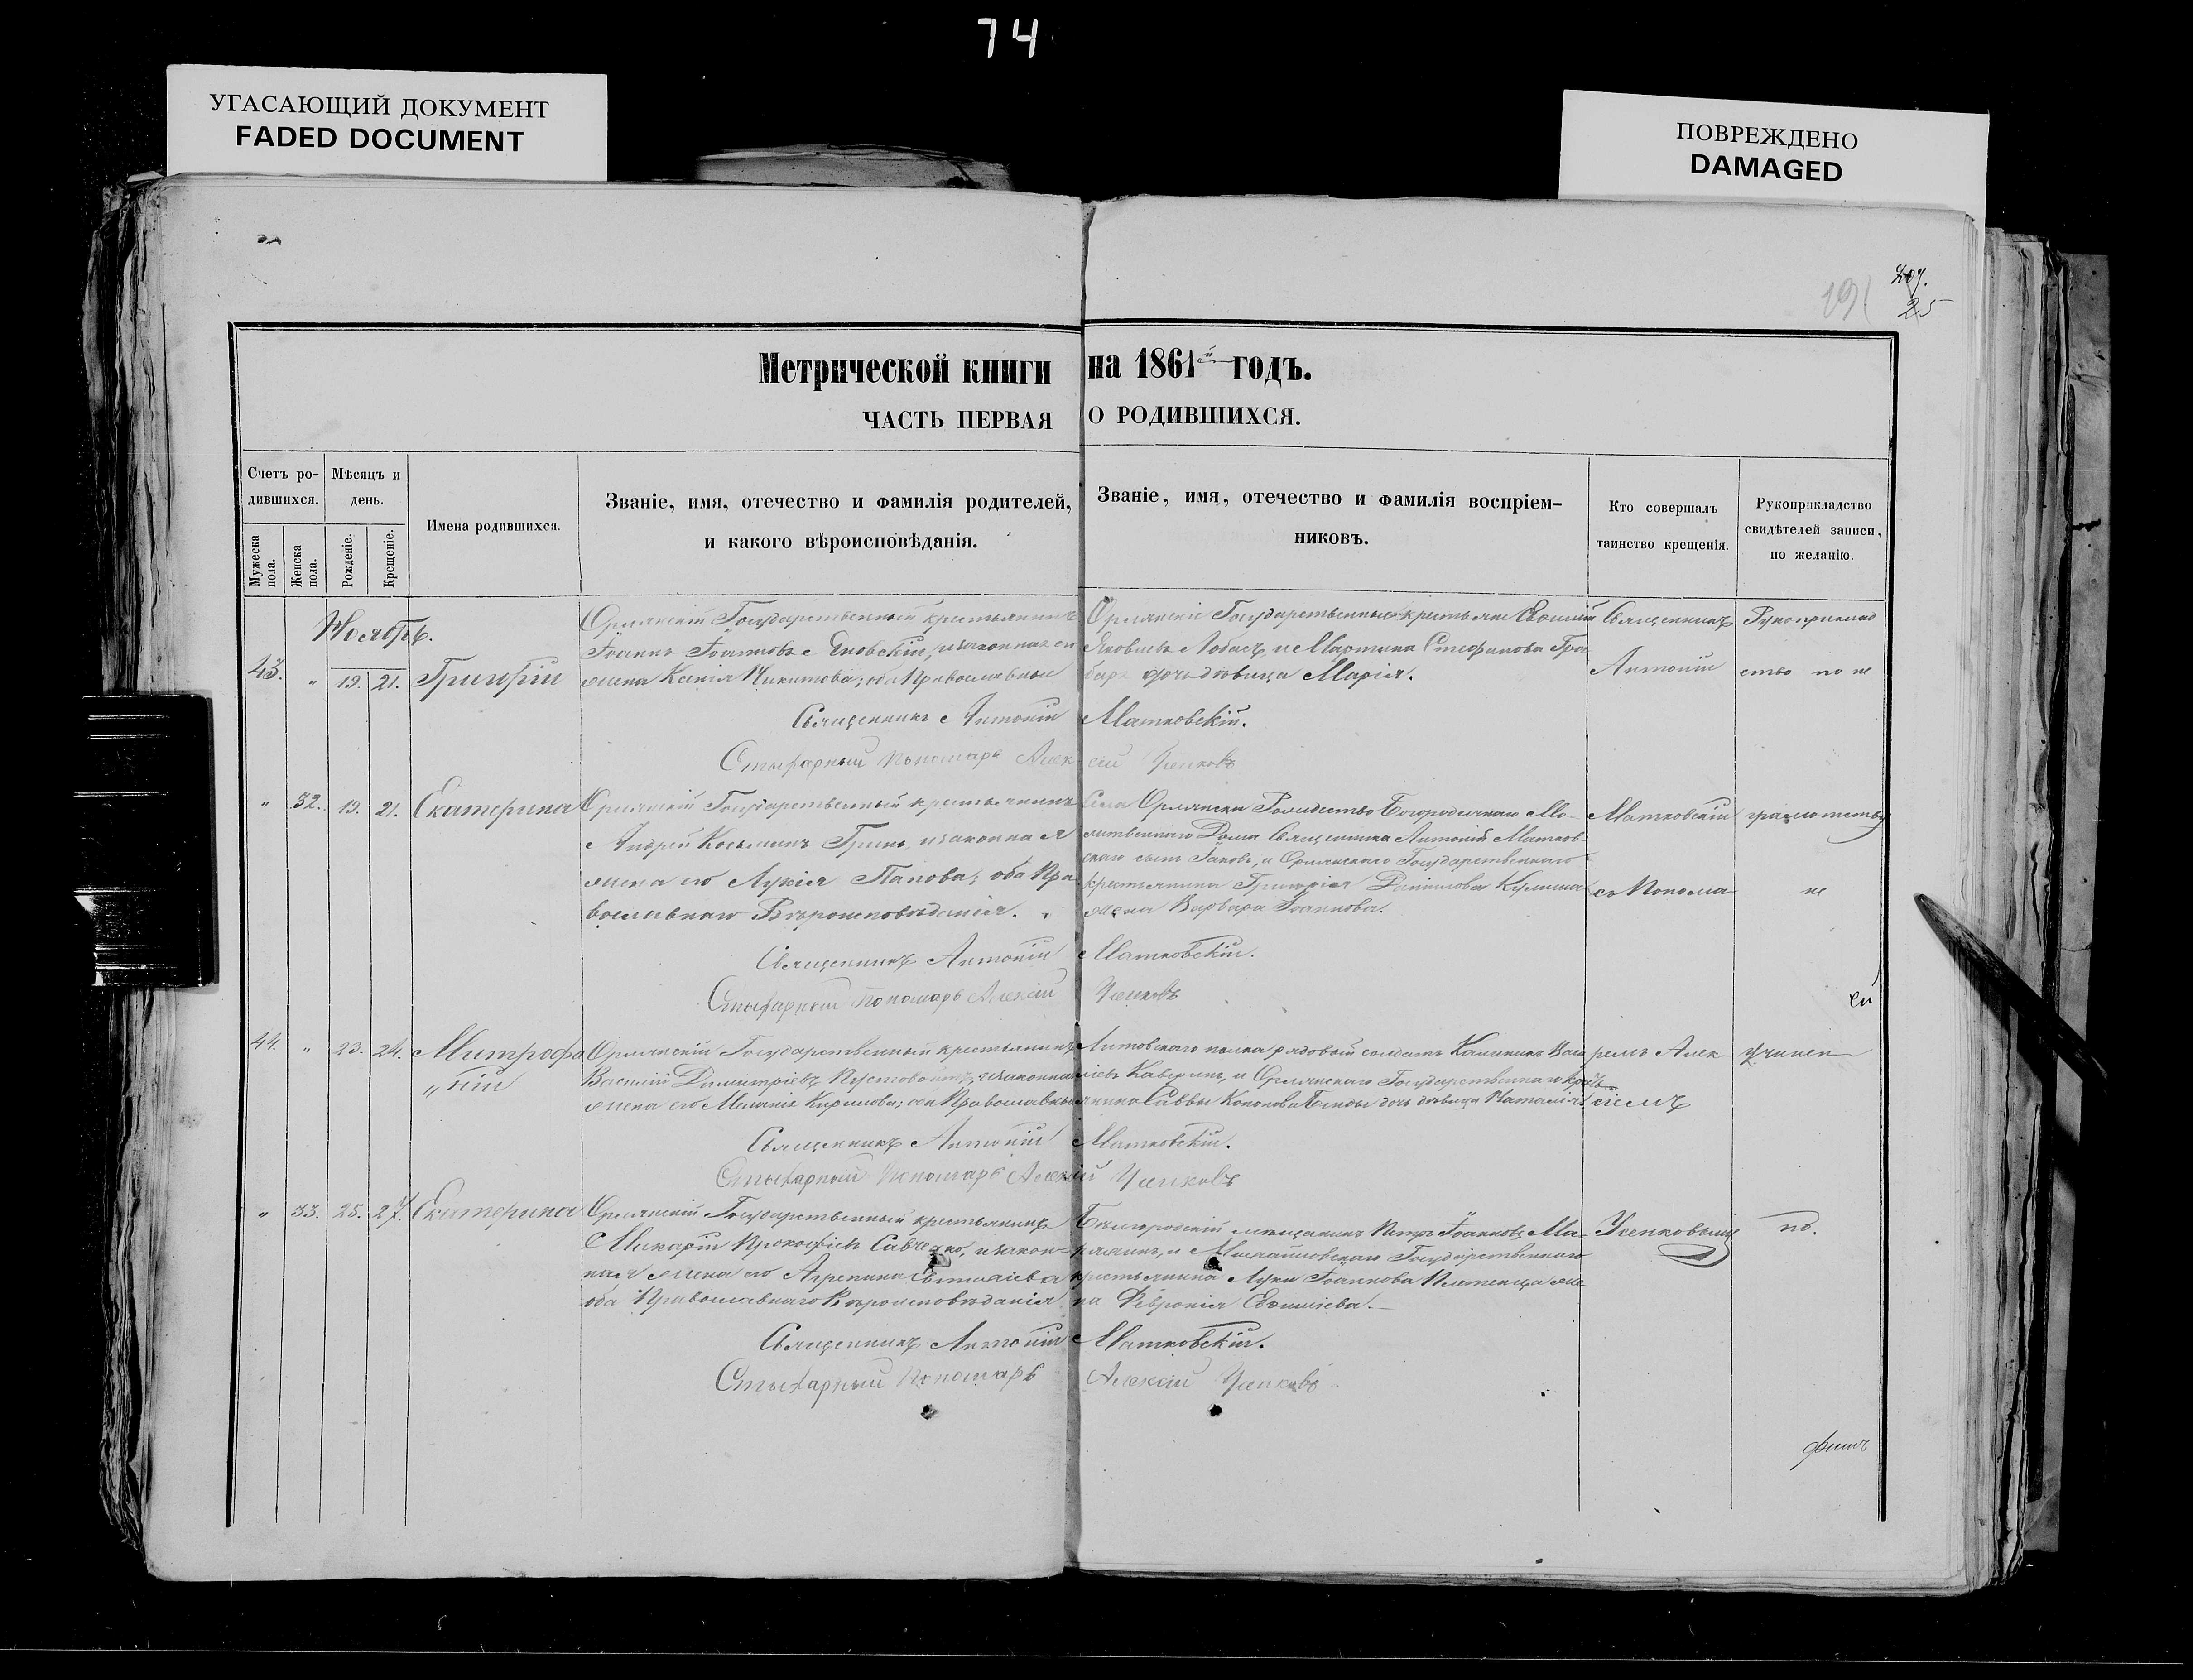 74
УГАСАЮЩИЙ ДОКУМЕНТ
FADED DOCUMENT
ПОВРЕЖДЕНО
DAMAGED
207.
191
25
Метрической книги на 1861й годъ.
ЧАСТЬ ПЕРВАЯ О РОДИВШИХСЯ.
Счетъ ро-
дившихся.
Мужеска пола.
Женска пола.
Мѣсяцъ и
день.
Рожденіе.
Крещеніе.
Имена родившихся.
Званіе, имя, отечество и фамилія родителей,
и какого вѣроисповѣданія.
Званіе, имя, отечество и фамилія воспріем-
никовъ.
Кто совершалъ
таинство крещенія.
Рукоприкладство
свидѣтелей записи,
по желанію.
Ноябрь.
43. „ 19. 21. Григорій
Орлянскій Государственный крестьянинъ
Іоаннъ Іоанновъ Яновскій, и законная его
жена Ксенія Никитова; оба Православные
Орлянскіе Государственные крестьяне Евѳимій
Яковлевъ Лобасъ, и Мартина Стефанова Гра
баря дочь девица Марія.
Священникъ
Антоній
Рукоприклад
ство по не
Священникъ Антоній Матковскій.
Стыхарный Пономарь Алексій Усенковъ
„ 32. 19. 21. Екатерина
Орлянскій Государственный крестьянинъ
Андрей Козьминъ Гринь, и законная
жена его Лукія Папова; оба Пра
вославнаго Вѣроисповѣданія.
Села Орлянска Рождество Богородичнаго Мо-
литвеннаго Дома Священника Антонія Матков
скаго сынъ Іаковъ, и Орлянскаго Государственнаго
крестьянина Григорія Данилова Кулиша
жена Варвара Іоаннова.
Матковскій
съ Понома
грамотству
не
Священникъ Антоній Матковскій.
Стыхарный Пономарь Алексій Усенковъ
44. „ 23. 24. Митрофа
„ній
Орлянскій Государственный крестьянинъ
Василій Димитріевъ Пустовойтъ, и законная
жена его Меланія Кирилова; оба Православные
Литовскаго полка рядовый солдатъ Калинникъ Васи
ліевъ Каверинъ, и Орлянскаго Государственнаго кресть
янина Саввы Кононова Бинды дочь девица Наталія.
ремъ Алек
сіемъ
учинен
Священникъ Антоній Матковскій.
Стыхарный Пономарь Алексій Усенковъ
„ 33. 25. 27. Екатерина
Орлянскій Государственный крестьянинъ
Макарій Прокофіевъ Савченко, и закон-
ная жена его Агрепина
оба Православнаго Вѣроисповѣданія
Белгородскій мещанинъ Петръ Іоанновъ Ма-
и Михайловскаго Государственнаго
крестьянина Луки Іоаннова жена
Февронія Евѳиміева.
Усенковымъ
но.
Священникъ Антоній Матковскій.
Стыхарный Пономарь Алексій Усенковъ